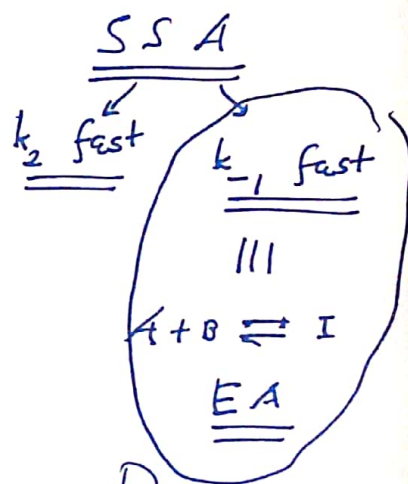 S S A
k₂ fast
k₋₁ fast
|||
A + B ⇌ I
E A
D